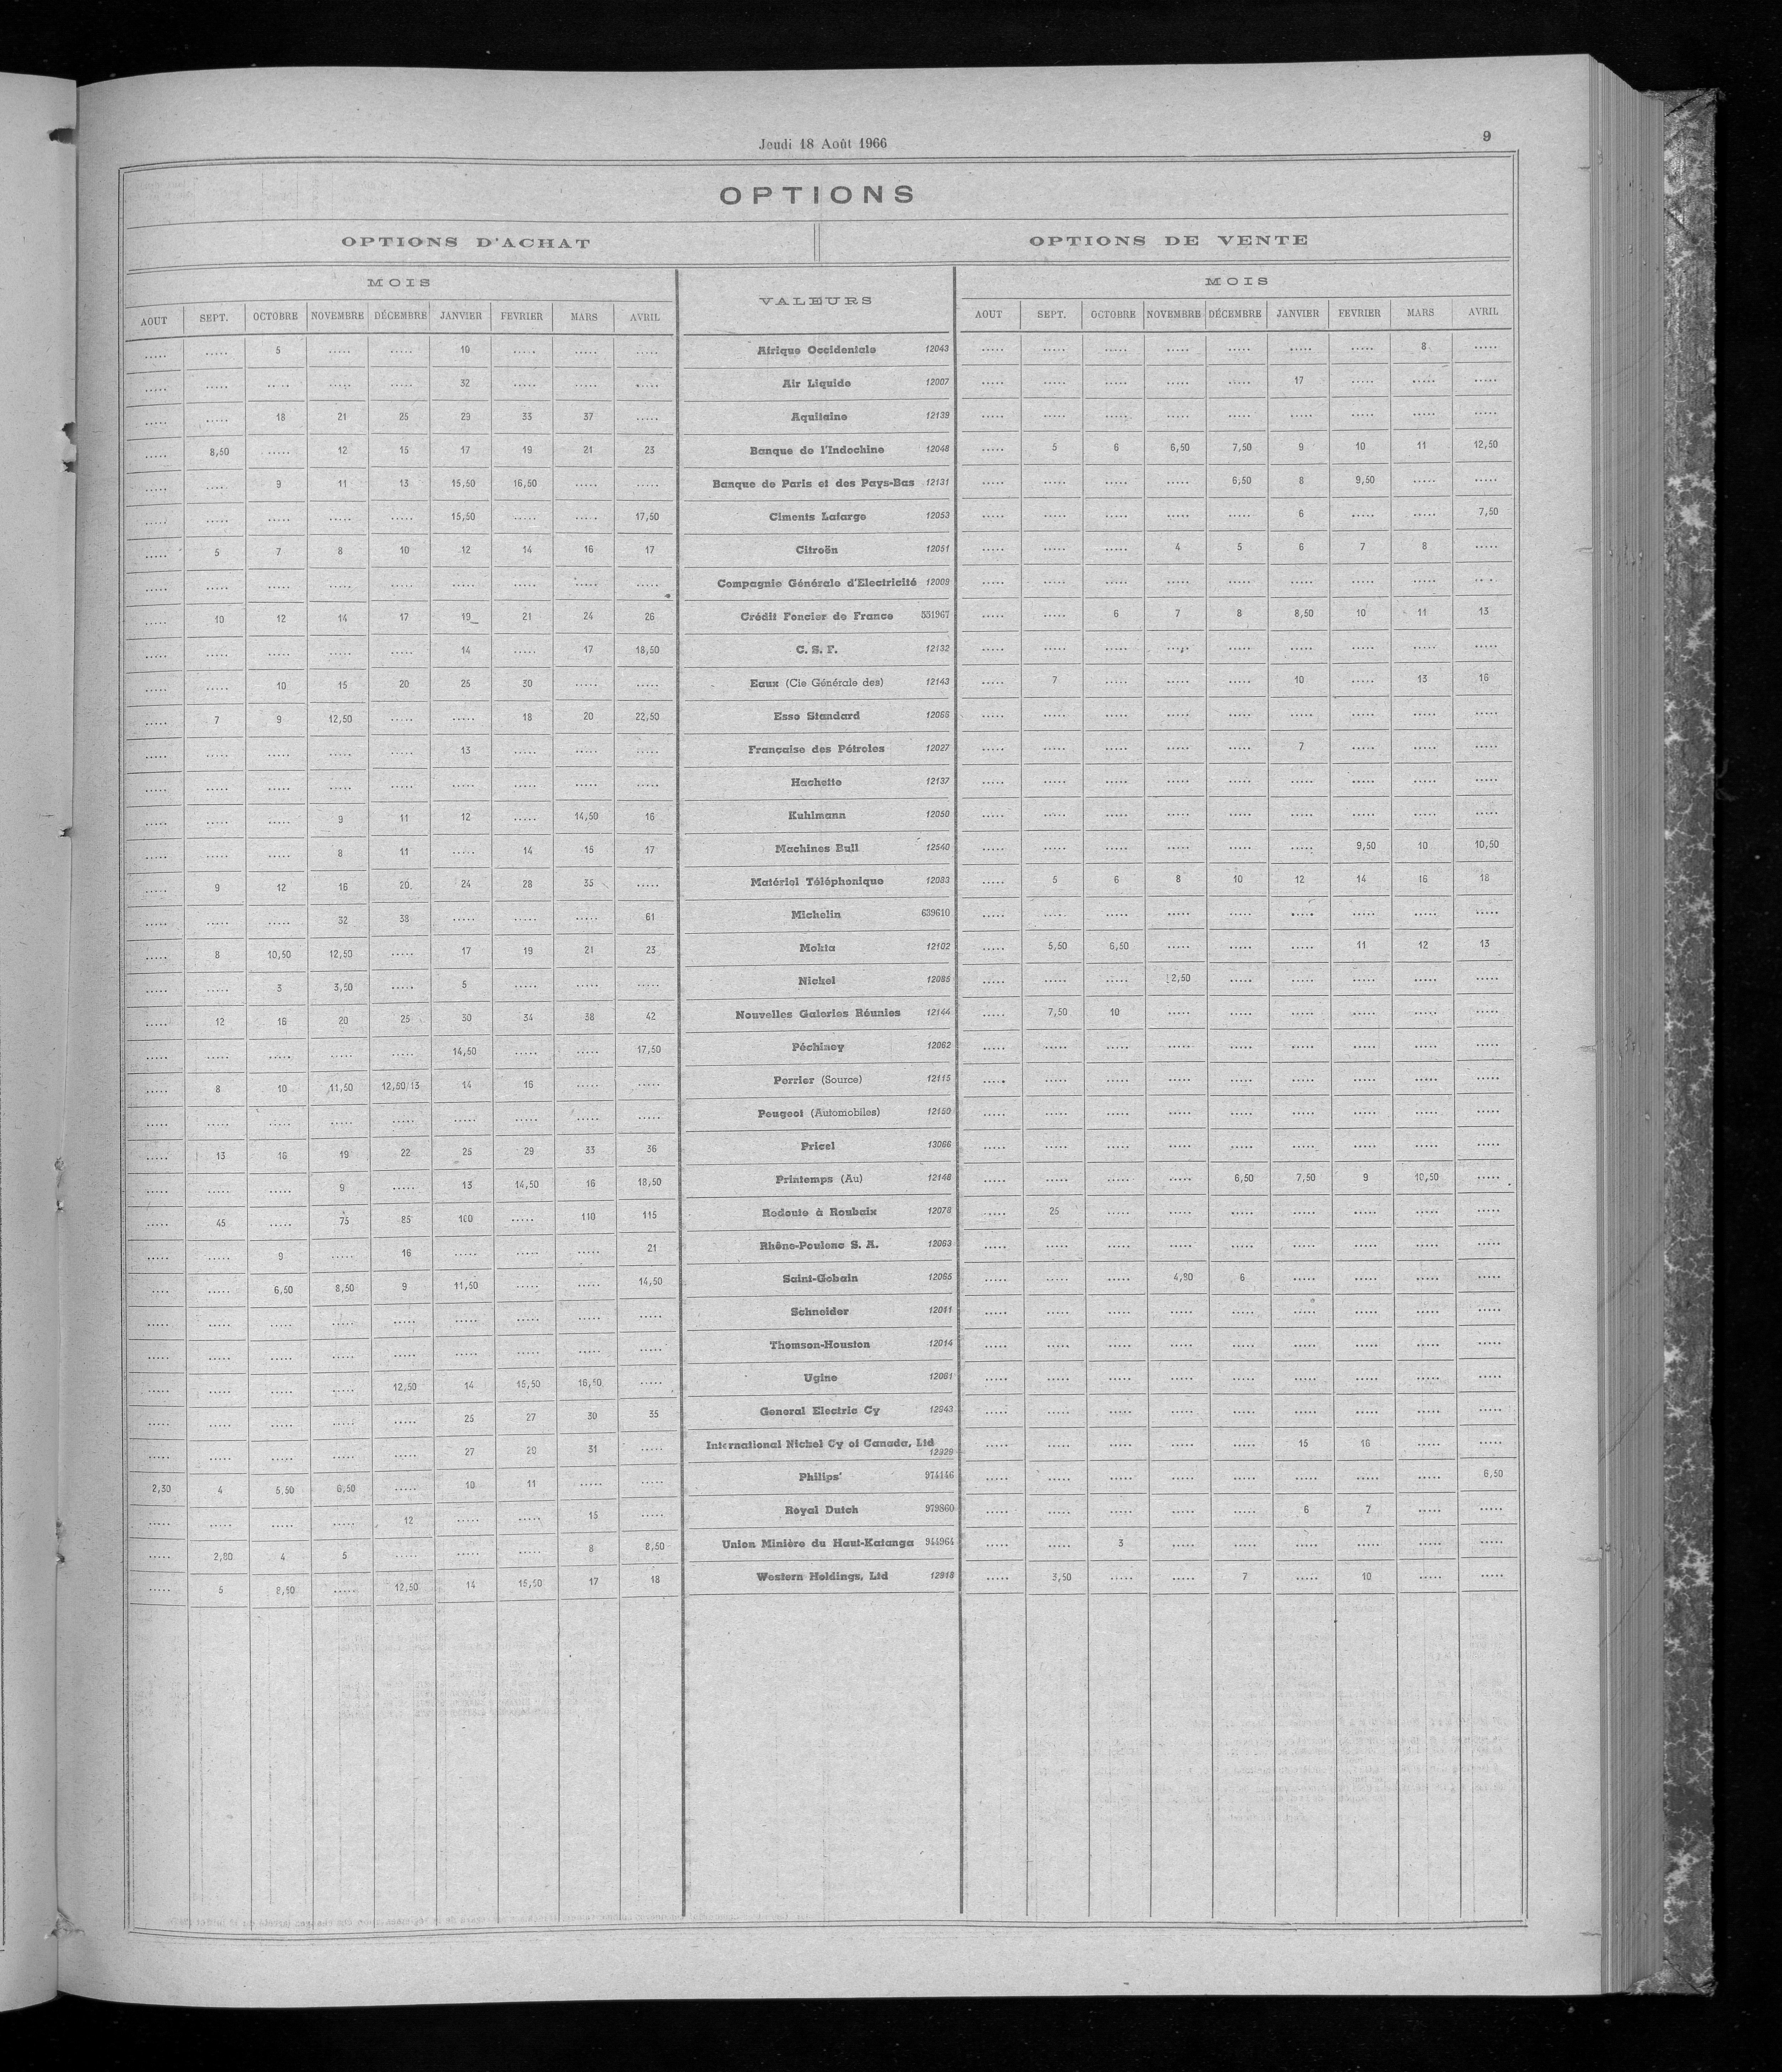 Jeudi 18 Août 1966
9
OPTIONS
OPTIONS D'ACHAT OPTIONS DE VENTE
MOIS VALEURS MOIS
AOUT SEPT. OCTOBRE NOVEMBRE DÉCEMBRE JANVIER FEVRIER MARS AVRIL AOUT SEPT. OCTOBRE NOVEMBRE DÉCEMBRE JANVIER FEVRIER MARS AVRIL
..... ..... 5 ..... ..... 10 ..... ..... ..... Afrique Occidentale 12043 ..... ..... ..... ..... ..... ..... ..... 8 .....
..... ..... ..... ..... ..... 32 ..... ..... ..... Air Liquide 12007 ..... ..... ..... ..... ..... 17 ..... ..... .....
..... ..... 18 21 25 29 33 37 ..... Aquitaine 12139 ..... ..... ..... ..... ..... ..... ..... ..... .....
..... 8,50 ..... 12 15 17 19 21 23 Banque de l'Indochine 12048 ..... 5 6 6,50 7,50 9 10 11 12,50
..... .... 9 11 13 15,50 16,50 ..... ..... Banque de Paris et des Pays-Bas 12131 ..... ..... ..... ..... 6,50 8 9,50 ..... .....
..... ..... ..... ..... ..... 15,50 ..... ..... 17,50 Ciments Lafarge 12053 ..... ..... ..... ..... ..... 6 ..... ..... 7,50
..... 5 7 8 10 12 14 16 17 Citroën 12051 ..... ..... ..... 4 5 6 7 8 .....
..... ..... ..... ..... ..... ..... ..... ..... ..... Compagnie Générale d'Electricité 12009 ..... ..... ..... ..... ..... ..... ..... ..... .....
..... 10 12 14 17 19 21 24 26 Crédit Foncier de France 331967 ..... ..... 6 7 8 8,50 10 11 13
..... ..... ..... ..... ..... 14 ..... 17 18,50 C. S. F. 12132 ..... ..... ..... ..... ..... ..... ..... ..... .....
..... ..... 10 15 20 25 30 ..... ..... Eaux (Cie Générale des) 12143 ..... 7 ..... ..... ..... 10 ..... 13 16
..... 7 9 12,50 ..... ..... 18 20 22,50 Esso Standard ..... ..... ..... ..... ..... ..... ..... ..... .....
..... ..... ..... ..... ..... 13 ..... ..... ..... Française des Pétroles 12027 ..... ..... ..... ..... ..... 7 ..... ..... .....
..... ..... ..... ..... ..... ..... ..... ..... ..... Hachette 12137 ..... ..... ..... ..... ..... ..... ..... ..... .....
..... ..... ..... 9 11 12 ..... 14,50 16 Kuhlmann 12050 ..... ..... ..... ..... ..... ..... ..... ..... .....
..... ..... ..... 8 11 ..... 14 15 17 Machines Bull 12540 ..... ..... ..... ..... ..... ..... 9,50 10 10,50
..... 9 12 16 20 24 28 35 ..... Matériel Téléphonique 12083 ..... 5 6 8 10 12 14 16 18
..... ..... ..... 32 38 ..... ..... ..... 61 Michelin 639610 ..... ..... ..... ..... ..... ..... ..... ..... .....
..... 8 10,50 12,50 ..... 17 19 21 23 Mokta 12102 ..... 5,50 6,50 ..... ..... ..... 11 12 13
..... ..... 3 3,50 ..... 5 ..... ..... ..... Nickel 12085 ..... ..... ..... 2,50 ..... ..... ..... ..... .....
..... 12 16 20 25 30 34 38 42 Nouvelles Galeries Réunies 12144 ..... 7,50 10 ..... ..... ..... ..... ..... .....
..... ..... ..... ..... ..... 14,50 ..... ..... 17,50 Péchiney 12062 ..... ..... ..... ..... ..... ..... ..... ..... .....
..... 8 10 11,50 12,50/13 14 16 ..... ..... Perrier (Source) 12115 ..... ..... ..... ..... ..... ..... ..... ..... .....
..... ..... ..... ..... ..... ..... ..... ..... ..... Peugeot (Automobiles) 12150 ..... ..... ..... ..... ..... ..... ..... ..... .....
..... 13 16 19 22 25 29 33 36 Pricel 13066 ..... ..... ..... ..... ..... ..... ..... ..... .....
..... ..... ..... 9 ..... 13 14,50 16 18,50 Printemps (Au) 12148 ..... ..... ..... ..... 6,50 7,50 9 10,50 .....
..... 45 ..... 75 85 100 ..... 110 115 Redoute à Roubaix 12078 ..... 25 ..... ..... ..... ..... ..... ..... .....
..... ..... 9 ..... 16 ..... ..... ..... 21 Rhône-Poulenc S. A. 12063 ..... ..... ..... ..... ..... ..... ..... ..... .....
.... ..... 6,50 8,50 9 11,50 ..... ..... 14,50 Saint-Gobain 12065 ..... ..... ..... 4,90 6 ..... ..... ..... .....
..... ..... ..... ..... ..... ..... ..... ..... ..... Schneider 12011 ..... ..... ..... ..... ..... ..... ..... ..... .....
..... ..... ..... ..... ..... ..... ..... ..... ..... Thomson-Houston 12014 ..... ..... ..... ..... ..... ..... ..... ..... .....
..... ..... ..... ..... 12,50 14 15,50 16,50 ..... Ugine 12061 ..... ..... ..... ..... ..... ..... ..... ..... .....
..... ..... ..... ..... ..... 25 27 30 35 General Electric Cy 12943 ..... ..... ..... ..... ..... ..... ..... ..... .....
..... ..... ..... ..... ..... 27 29 31 ..... International Nickel Cy of Canada, Ltd 12929 ..... ..... ..... ..... ..... 15 16 ..... .....
2,30 4 5,50 6,50 ..... 10 11 ..... ..... Philips' 974146 ..... ..... ..... ..... ..... ..... ..... ..... 6,50
..... ..... ..... ..... 12 ..... ..... 15 ..... Royal Dutch 979860 ..... ..... ..... ..... ..... 6 7 ..... .....
..... 2,80 4 5 ..... ..... ..... 8 8,50 Union Minière du Haut-Katanga 944964 ..... ..... 3 ..... ..... ..... ..... ..... .....
..... 5 8,50 ..... 12,50 14 15,50 17 18 Western Holdings, Ltd 12918 ..... 3,50 ..... ..... 7 ..... 10 ..... .....